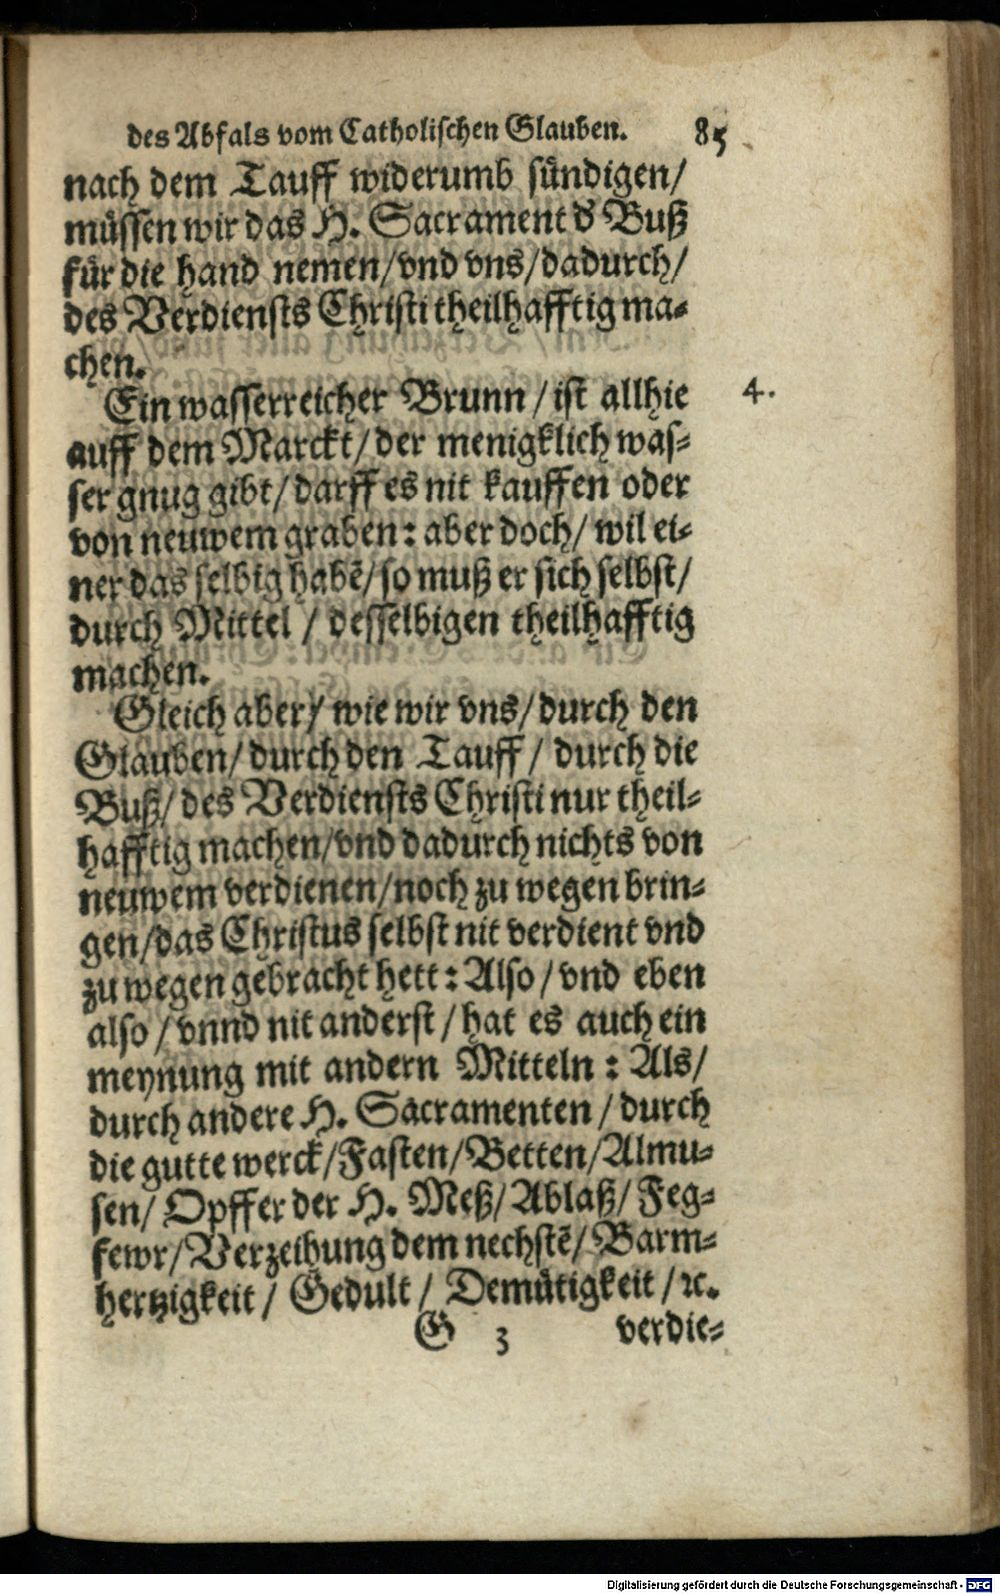 des Abfals vom Catholischen Glauben. 85
nach dem Tauff widerumb sündigen/
müssen wir das H. Sacrament d' Buß
für die hand nemen/vnd vns/dadurch/
des Verdiensts Christi theilhafftig ma-
chen.
Ein wasserreicher Brunn / ist allhie 4.
auff dem Marckt/ der menigklich was-
ser gnug gibt/ darff es nit kauffen oder
von neuwem graben: aber doch/ wil ei-
ner das selbig habẽ/ so muß er sich selbst/
durch Mittel / desselbigen theilhafftig
machen.
Gleich aber/ wie wir vns/ durch den
Glauben/ durch den Tauff/ durch die
Buß/ des Verdiensts Christi nur theil-
hafftig machen/vnd dadurch nichts von
neuwem verdienen/noch zu wegen brin-
gen/das Christus selbst nit verdient vnd
zu wegen gebracht hett: Also/ vnd eben
also / vnnd nit anderst / hat es auch ein
meynung mit andern Mitteln : Als/
durch andere H. Sacramenten / durch
die gutte werck/Fasten/Betten/Almu-
sen/ Opffer der H. Meß/ Ablaß/ Feg-
fewr/ Verzeihung dem nechstẽ/ Barm-
hertzigkeit / Gedult / Demütigkeit / ꝛc.
G 3 verdie-
Digitalisierung gefördert durch die Deutsche Forschungsgemeinschaft - DFG